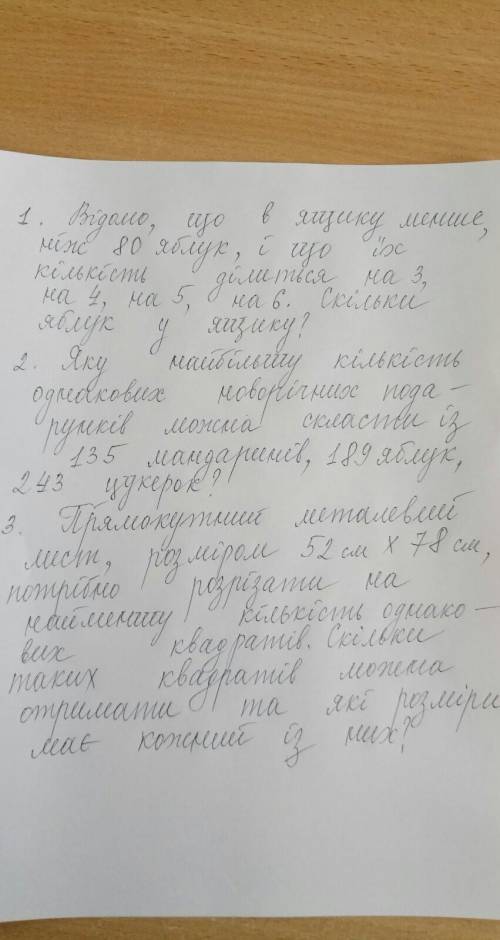 1. Відомо, що в ящику менше,
ніж 80 яблук, і що їх
кількість ділиться на 3,
на 4, на 5, на 6. Скільки
яблук у ящику?
2. Яку найбільшу кількість
однакових новорічних пода-
рунків можна скласти із
135 мандаринів, 189 яблук,
243 цукерок?
3. Прямокутний металевий
лист, розміром 52 см х 78 см,
потрібно розрізати на
найменшу кількість однако-
вих квадратів. Скільки
таких квадратів можна
отримати та які розміри
має кожний із них?